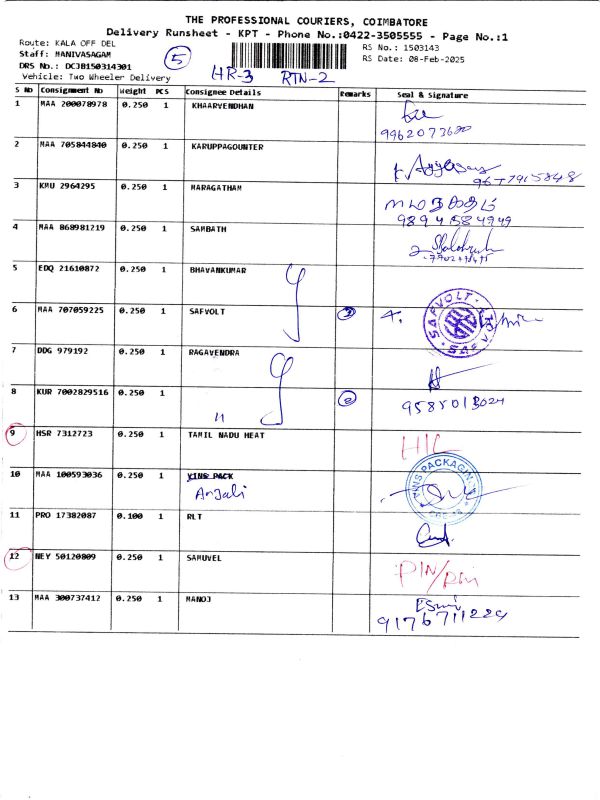 THE PROFESSIONAL COURIERS, COIMBATORE
Delivery Runsheet - KPT - Phone No.:0422-3505555 - Page No.:1
Route: KALA OFF DEL
RS No.: 1503143
Staff: MANIVASAGAM
5
RS Date: 08-Feb-2025
DRS No.: DCJB150314301
Vehicle: Two Wheeler Delivery HR-3 RTN-2
S No Consignment No Weight PCS Consignee Details Remarks Seal & Signature
1 MAA 200078978 0.250 1 KHAARVENDHAN
9962073680
2 MAA 705844840 0.250 1 KARUPPAGOUNTER
9677915848
3 KMU 2964295 0.250 1 MARAGATHAM
9894584949
4 MAA 868981219 0.250 1 SAMBATH
5 EDQ 21610872 0.250 1 BHAVANKUMAR
6 MAA 707059225 0.250 1 SAFVOLT
SAFVOLT
7 DDG 979192 0.250 1 RAGAVENDRA
8 KUR 7002829516 0.250 1 "
9 HSR 7312723 0.250 1 TAMIL NADU HEAT
10 MAA 100593036 0.250 1 VINS PACK
Anjali
11 PRO 17382087 0.100 1 RLT
12 NEY 50120809 0.250 1 SAMUVEL
13 MAA 300737412 0.250 1 MANOJ
9176711229